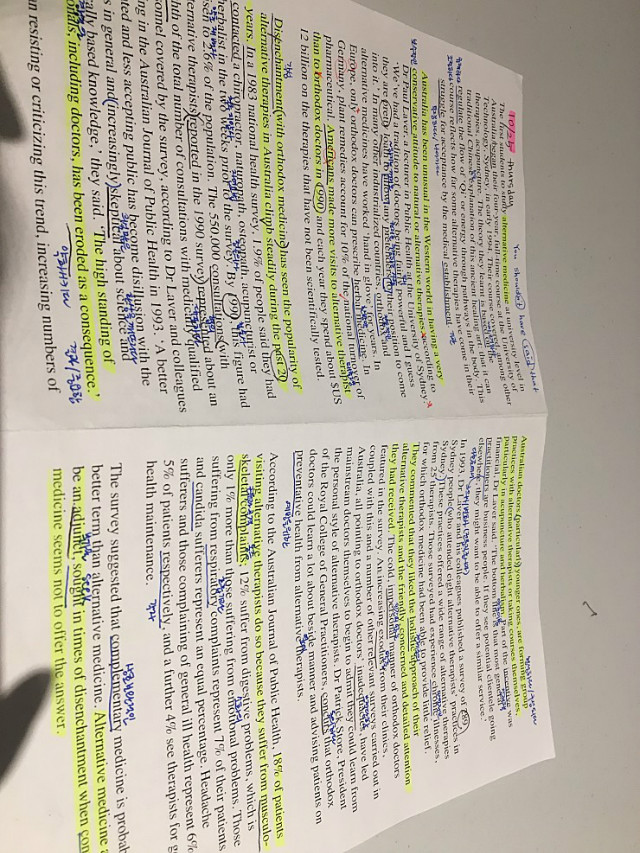 thursday
You should have said that
The first students to study alternative medicine at university level in
Australia began their four-year, full-time course at the University of
Technology, Sydney, in early 1994. Their course covered, among other
therapies, acupuncture. The theory they learnt is based on the
traditional Chinese explanation of this ancient healing art: that it can
regulate the flow of 'Qi' or energy through pathways in the body. This
course reflects how far some alternative therapies have come in their
struggle for acceptance by the medical establishment.
Australia has been unusual in the Western world in having a very
conservative attitude to natural or alternative therapies, according to
Dr Paul Laver, a lecturer in Public Health at the University of Sydney.
'We've had a tradition of doctors being fairly powerful and I guess
they are pretty loath to allow any pretenders to their position to come
into it.' In many other industrialized countries, orthodox and
alternative medicines have worked 'hand in glove' for years. In
Europe, only orthodox doctors can prescribe herbal medicine. In
Germany, plant remedies account for 10% of the national turnover of
pharmaceutical. Americans made more visits to alternative therapist
than to orthodox doctors in 1990, and each year they spend about $US
12 billion on the therapies that have not been scientifically tested.
Disenchantment with orthodox medicine has seen the popularity of
alternative therapies in Australia climb steadily during the past 20
years. In a 1983 national health survey, 1.9% of people said they had
contacted a chiropractor, naturopath, osteopath, acupuncturist or
herbalist in the two weeks prior to the survey. By 1990, this figure had
risen to 2.6% of the population. The 550,000 consultations with
alternative therapists reported in the 1990 survey represented about an
eighth of the total number of consultations with medically qualified
personnel covered by the survey, according to Dr Laver and colleagues
writing in the Australian Journal of Public Health in 1993. 'A better
educated and less accepting public has become disillusion with the
experts in general and increasingly skeptical about science and
empirically based knowledge,' they said. 'The high standing of
professionals, including doctors, has been eroded as a consequence.'
than resisting or criticizing this trend, increasing numbers of
Australian doctors, particularly younger ones, are forming group
practices with alternative therapists or taking courses themselves,
particularly in acupuncture and herbalism. Part of the incentive was
financial, Dr Laver said. 'The bottom line is that most general
practitioners are business people. If they see potential clientele going
elsewhere, they might want to be able to offer a similar service.'
In 1993, Dr Laver and his colleagues published a survey of 289
Sydney people who attended eight alternative therapists' practices in
Sydney. These practices offered a wide range of alternative therapies
from 25 therapists. Those surveyed had experience chronic illnesses,
for which orthodox medicine had been able to provide little relief.
They commented that they liked the holistic approach of their
alternative therapists and the friendly, concerned and detailed attention
they had received. The cold, impersonal manner of orthodox doctors
featured in the survey. An increasing exodus from their clinics,
coupled with this and a number of other relevant surveys carried out in
Australia, all pointing to orthodox doctors' inadequacies, have led
mainstream doctors themselves to begin to admit they could learn from
the personal style of alternative therapists. Dr Patrick Store, President
of the Royal College of General Practitioners, concurs that orthodox
doctors could learn a lot about beside manner and advising patients on
preventative health from alternative therapists.
According to the Australian Journal of Public Health, 18% of patients
visiting alternative therapists do so because they suffer from musculo-
skeletal complaints; 12% suffer from digestive problems, which is
only 1% more than those suffering from emotional problems. Those
suffering from respiratory complaints represent 7% of their patients,
and candida sufferers represent an equal percentage. Headache
sufferers and those complaining of general ill health represent 6%
5% of patients respectively, and a further 4% see therapists for g
health maintenance.
The survey suggested that complementary medicine is probab
better term than alternative medicine. Alternative medicine a
be an adjunct, sought in times of disenchantment when con
medicine seems not to offer the answer.